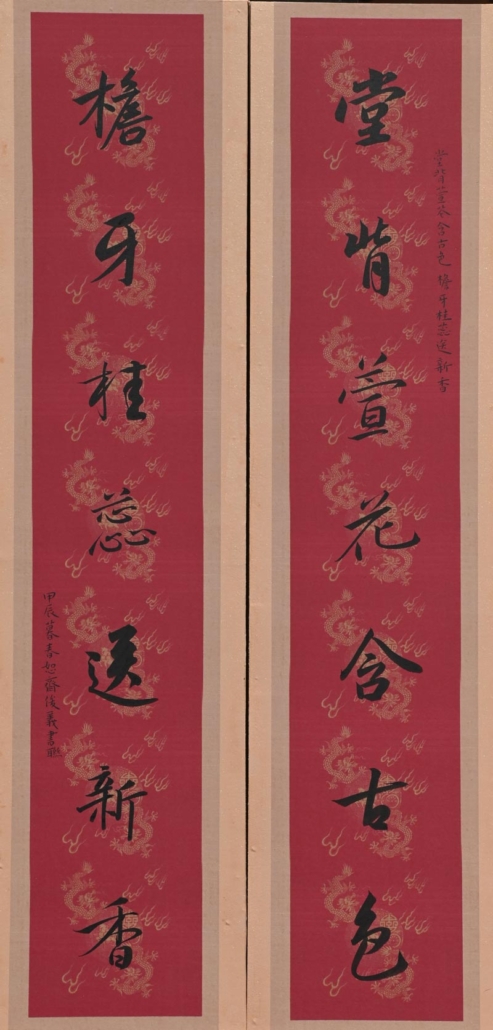 堂背萱花含古色
堂背萱花含古色 檐牙桂蕊送新香
檐牙桂蕊送新香
甲辰暮春恕齋俊義書